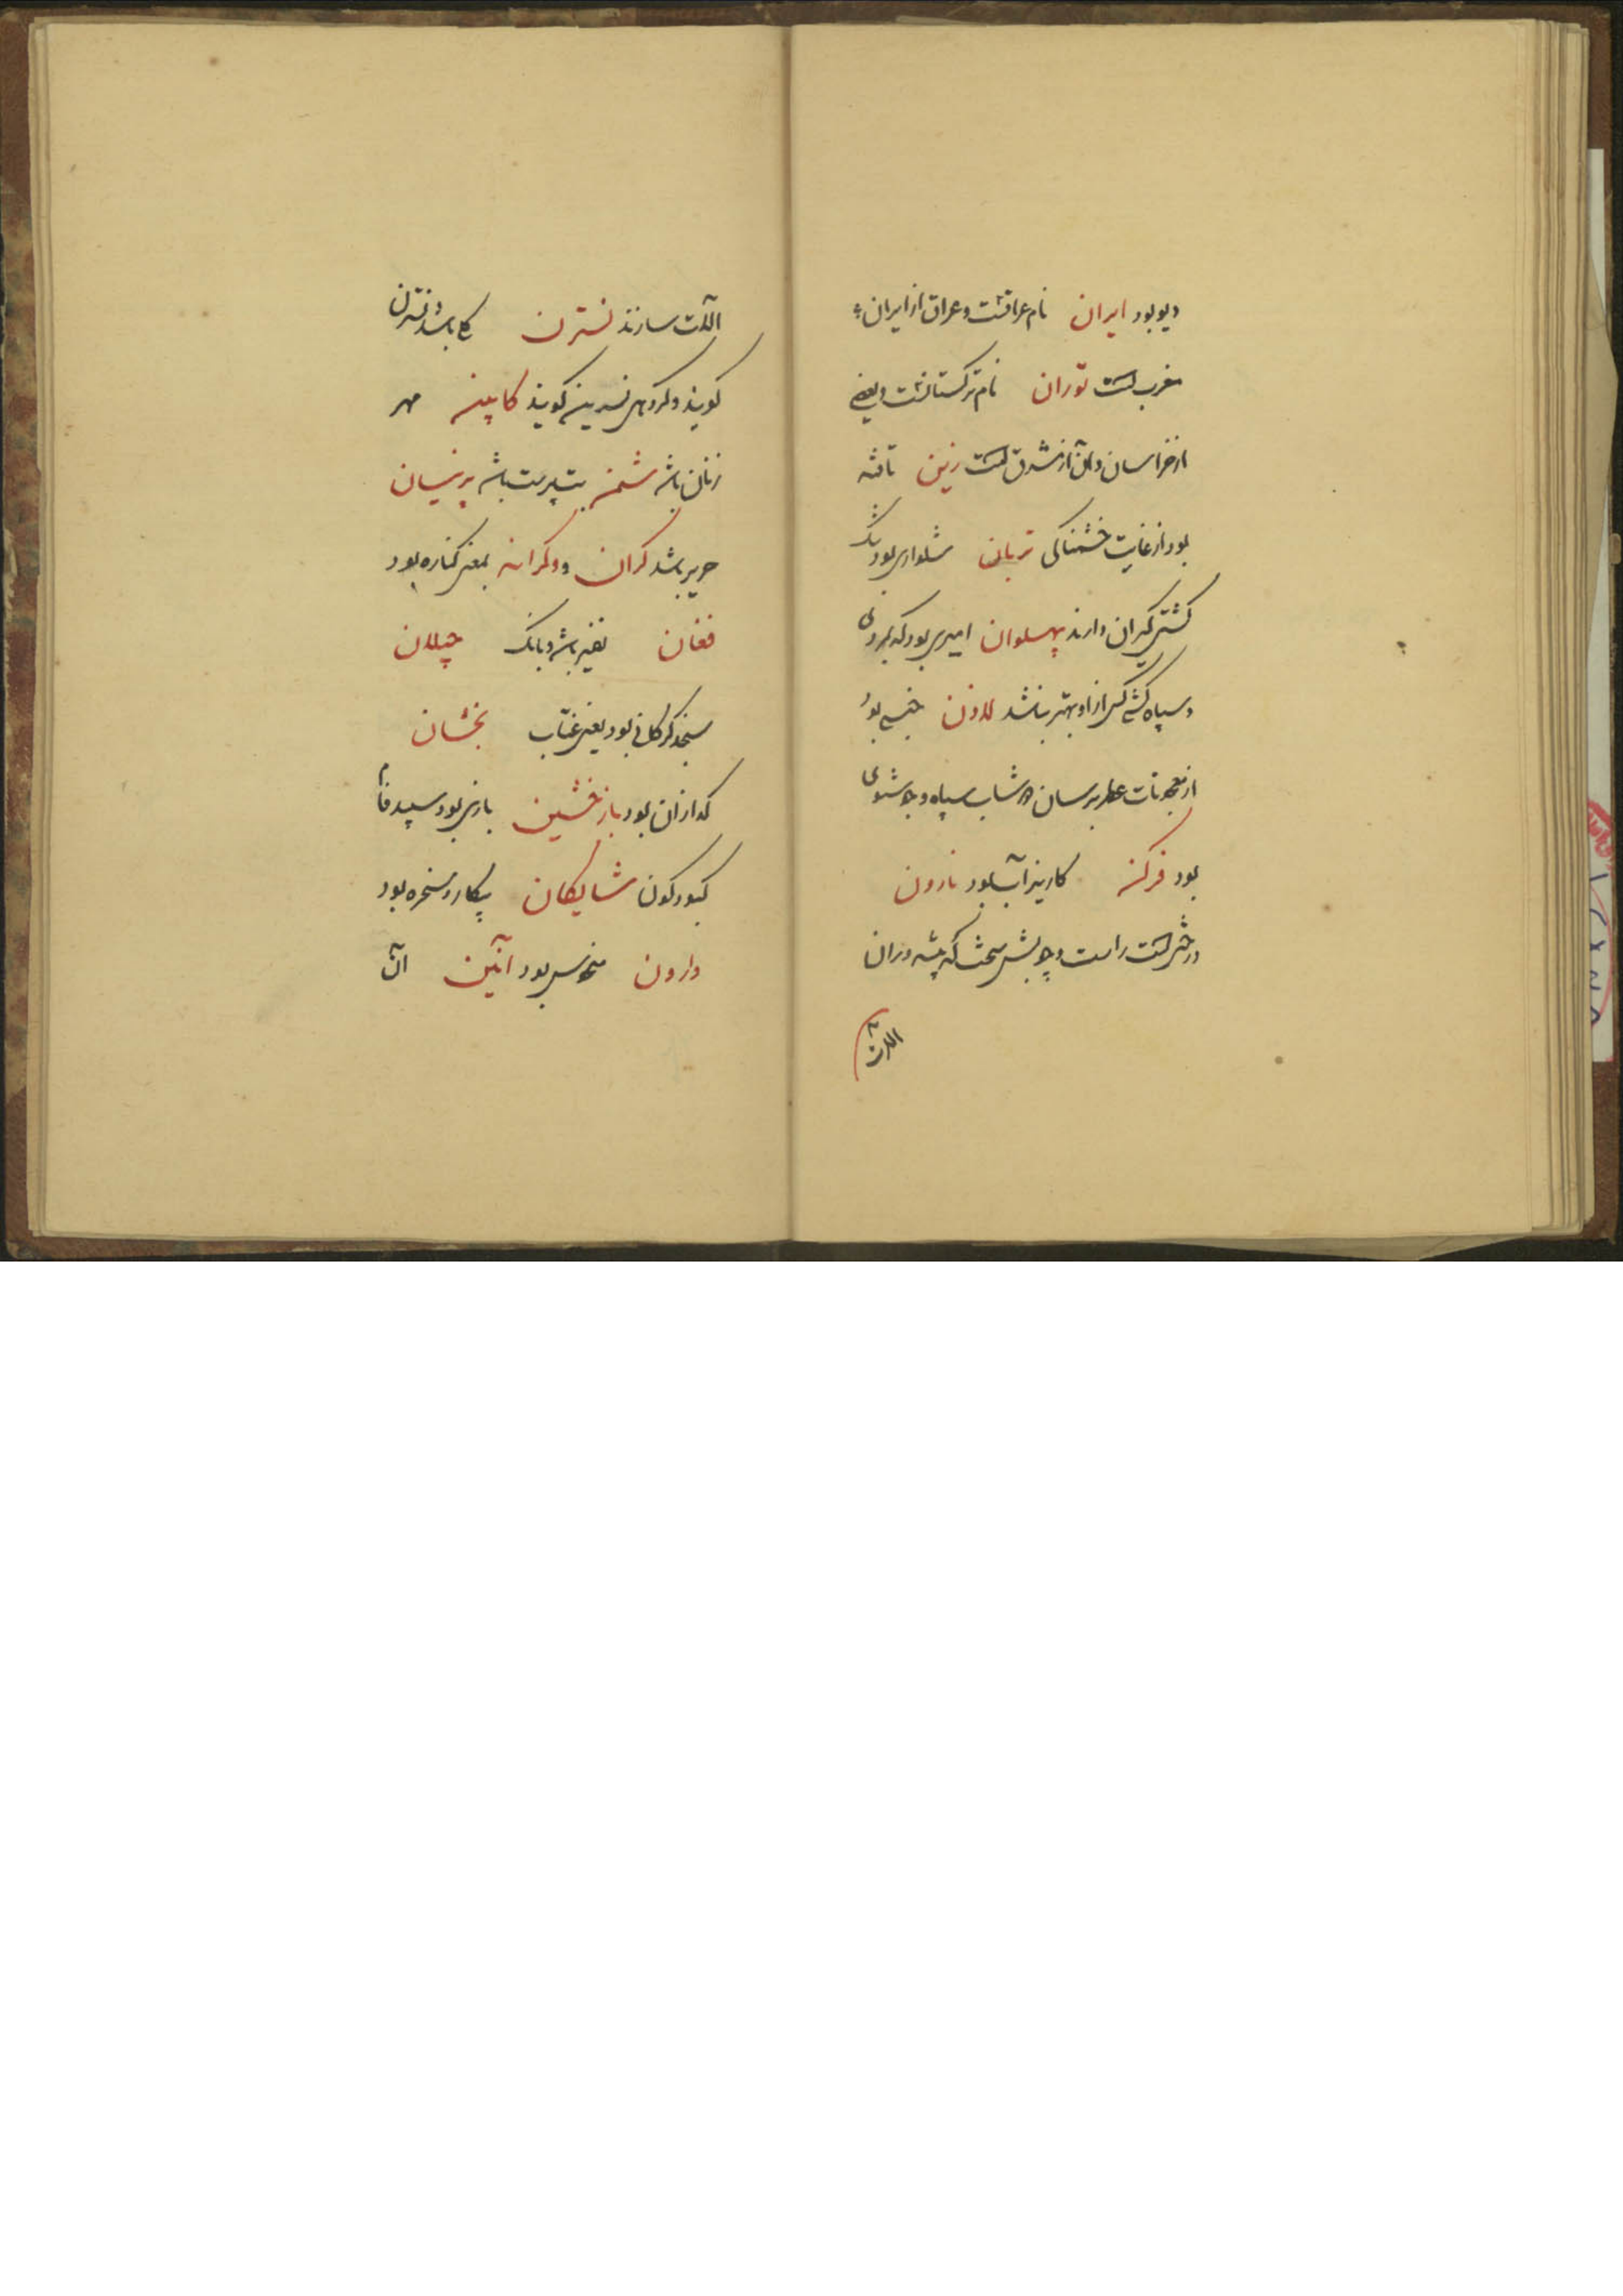 دیو بود ایران نام عراقست و عراق از ایران
مغرب است توران نام ترکستانست و بعضی
از خراسان و آن از مشرق است ژیین تافته
بود از غایت خشمناکی تربان شلواری بود تنگ
کشتی گیران دارند پهلوان امیری بود که بمردی
و سپاه کشی کسی از او بهتر نباشد لادن جنسی بود
از معجونات عطر برسان دوشاب سیاه و خوشبوی
بود فرکن کاریز آب بود نارون
درختی است راست و چوبش سخت که پیشه وران
آلات
آلات سازند نسترن گلی باشد و نسترن
گویند و گروهی نسرین گویند کابین مهر
زنان باشد شمن بت پرست باشد پرنیان
حریر باشد کران و کرانه بمعنی کناره بود
فغان نفیر باشد و بانگ چیلان
سنجد گرگانی بود یعنی عناب بخشان
گدازان بود باز خشین بازی بود سپید فام
کبود گون شایگان بیکار و سخره بود
وارون منحوس بود آئین آن